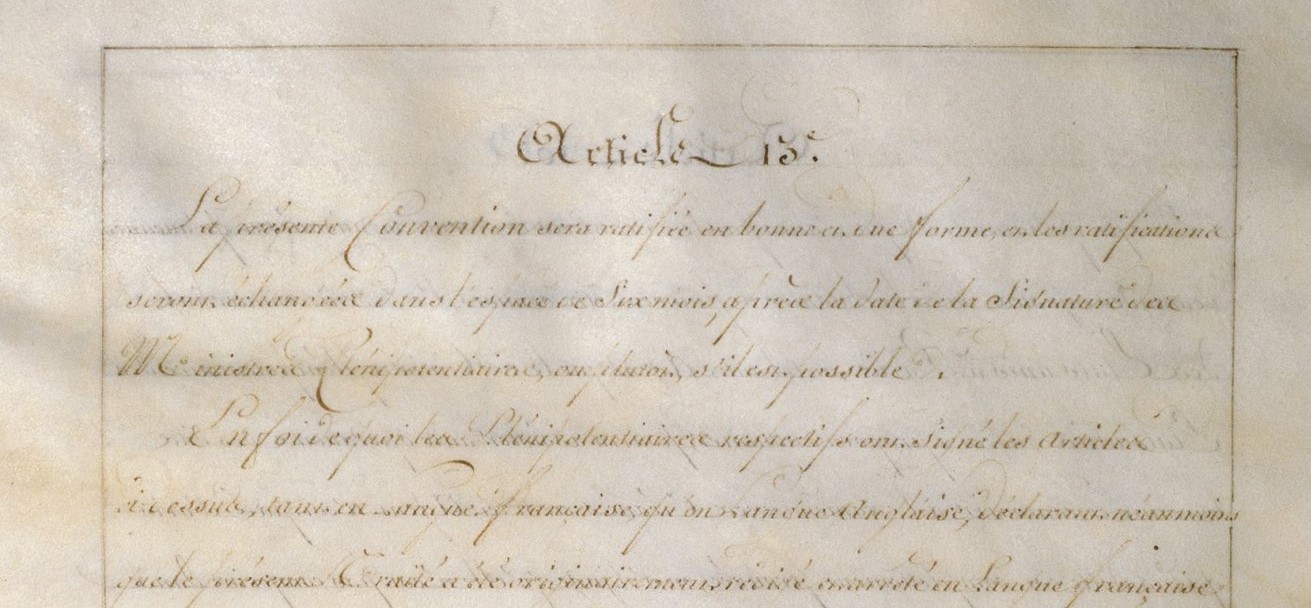 Article 13e.
La présente Convention sera ratifiée en bonne et due forme, et les ratifications
seront échangées dans l'espace de Six mois, après la date de la Signature des
Ministres Plénipotentiaires, ou plutot, s'il est possible.
En foi de quoi les Plénipotentiaires respectifs ont Signé les articles
ci dessus, tant en Langue française, qu'en Langue Anglaise, déclarant néanmoins
que le présent Traité a été originairement rédigé et arrêté en Langue française